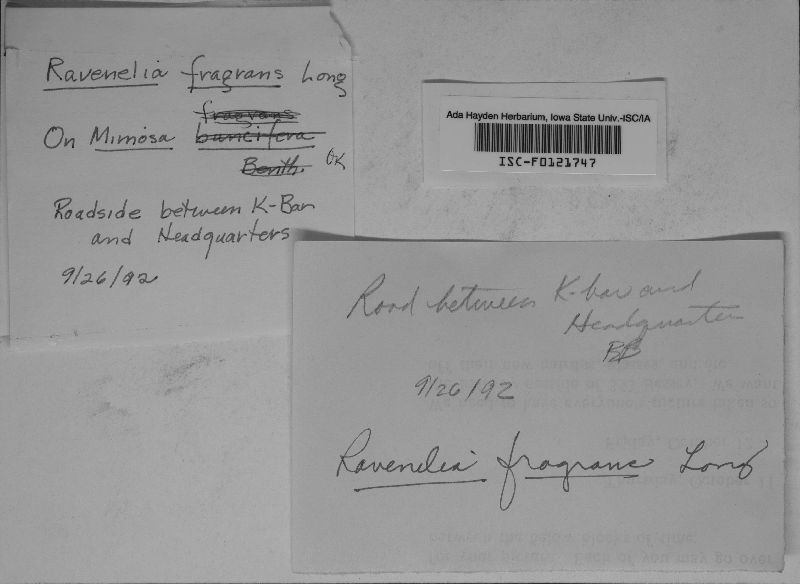 Ravenelia fragrans Long
fragrans
On Mimosa buncifera
Benth. OK
Roadside between K-Bar
and Headquarters
9/26/92
Ada Hayden Herbarium, Iowa State Univ.-ISC/IA
ISC-F0121747
Road between K-bar and
Headquarters
BB
9/26/92
Ravenelia fragrans Long